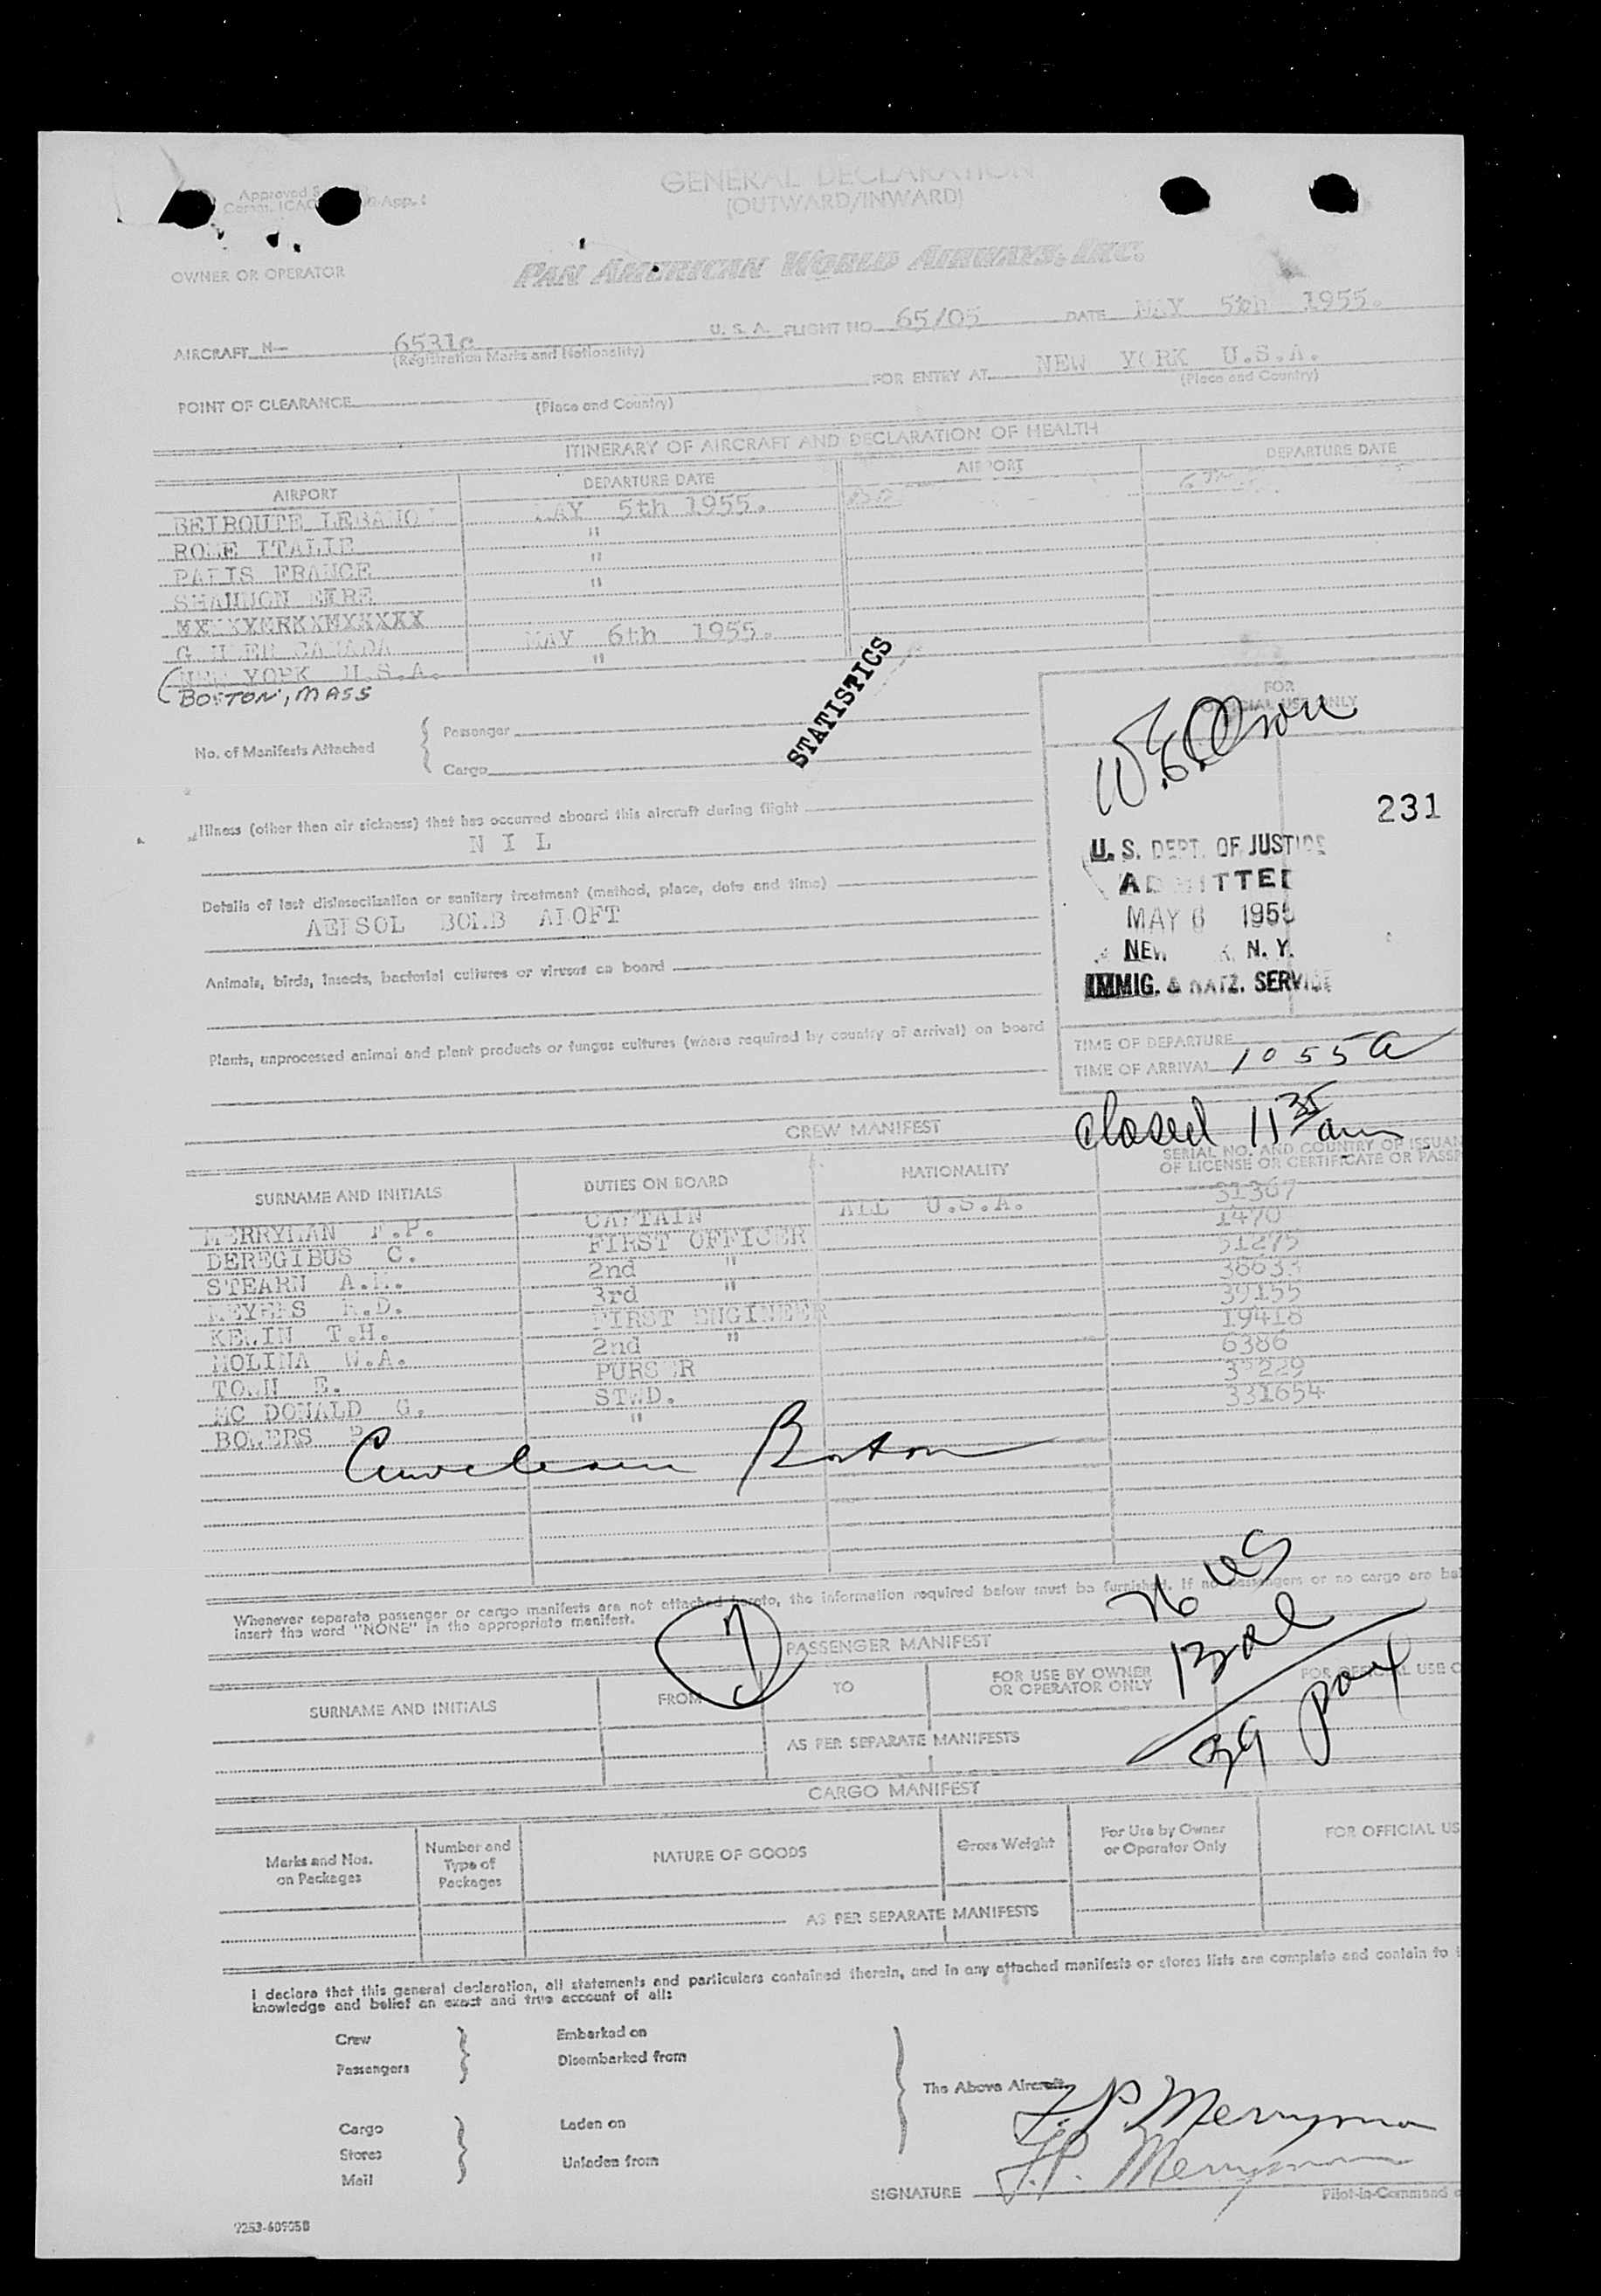 GENERAL DECLARATION
(OUTWARD/INWARD)
Approved
App.
OWNER OR OPERATOR
PAN AMERICAN WORLD AIRWAYS, INC.
AIRCRAFT N— 6531c U. S. A. FLIGHT NO. 65/05 DATE MAY 5th 1955.
(Registration Marks and Nationality)
POINT OF CLEARANCE FOR ENTRY AT NEW YORK U.S.A.
(Place and Country) (Place and Country)
ITINERARY OF AIRCRAFT AND DECLARATION OF HEALTH
AIRPORT DEPARTURE DATE AIRPORT DEPARTURE DATE
BEIROUTE LEBANON MAY 5th 1955.
ROME ITALIE "
PARIS FRANCE "
SHANNON EIRE "
GANDER CANADA MAY 6th 1955.
NEW YORK U.S.A. "
BOSTON, MASS
STATISTICS
No. of Manifests Attached
Passenger
Cargo
FOR
OFFICIAL USE ONLY
231
Illness (other than air sickness) that has occurred aboard this aircraft during flight
N I L
Details of last disinsectization or sanitary treatment (method, place, date and time)
AERSOL BOMB ALOFT
Animals, birds, insects, bacterial cultures or viruses on board
Plants, unprocessed animal and plant products or fungus cultures (where required by country of arrival) on board
U. S. DEPT. OF JUSTICE
ADMITTED
MAY 6 1955
NEW YORK, N. Y.
IMMIG. & NATZ. SERVICE
TIME OF DEPARTURE
TIME OF ARRIVAL 1055 a
closed 11 35 am
CREW MANIFEST
SURNAME AND INITIALS DUTIES ON BOARD NATIONALITY SERIAL NO. AND COUNTRY OF ISSUAN
OF LICENSE OR CERTIFICATE OR PASSP
MERRYMAN F.P. CAPTAIN ALL U.S.A. 31367
DEREGIBUS C. FIRST OFFICER 1470
STEARN A.M. 2nd " 31275
MEYERS R.D. 3rd " 38633
T.H. FIRST ENGINEER 39155
MOLINA W.A. 2nd " 19418
E. PURSER 6386
MC DONALD G. STWD. 35229
BOWERS P " 331654
Boston
Whenever separate passenger or cargo manifests are not attached hereto, the information required below must be furnished. If no passengers or no cargo are
insert the word "NONE" in the appropriate manifest.
PASSENGER MANIFEST
SURNAME AND INITIALS FROM TO FOR USE BY OWNER
OR OPERATOR ONLY FOR OFFICIAL USE O
AS PER SEPARATE MANIFESTS
26 US
13 al
39 pax
CARGO MANIFEST
Marks and Nos.
on Packages
Number and
Type of
Packages
NATURE OF GOODS
Gross Weight
For Use by Owner
or Operator Only
FOR OFFICIAL US
AS PER SEPARATE MANIFESTS
I declare that this general declaration, all statements and particulars contained therein, and in any attached manifests or stores lists are complete and contain to
knowledge and belief an exact and true account of all:
Crew Embarked on
Passengers Disembarked from
The Above Aircraft.
Cargo Laden on
Stores
Mail Unladen from
F.P. Merryman
F.P. Merryman
SIGNATURE
Pilot-in-Command
7253-609058